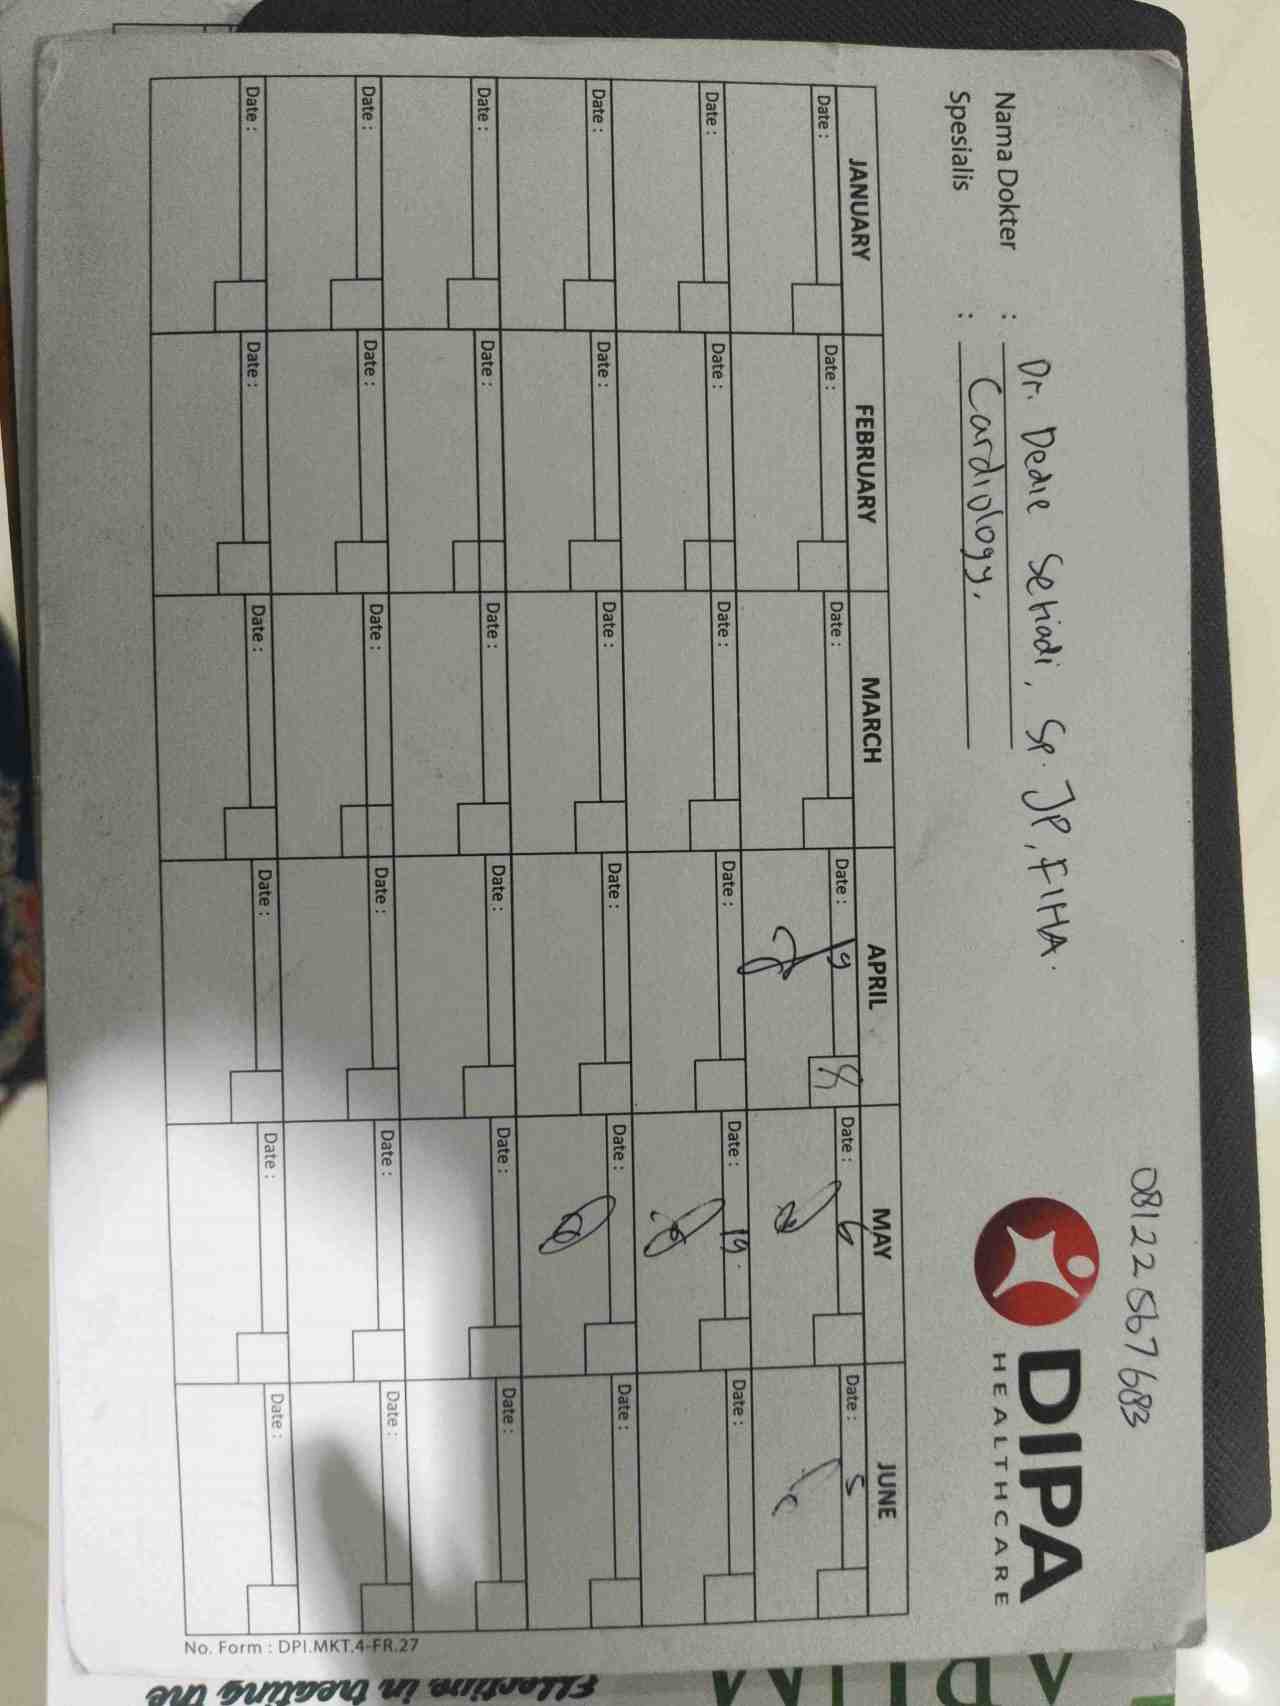 081222567683
DIPA
HEALTHCARE
Nama Dokter : Dr. Dedie Setiadi, Sp. JP, FIHA.
Spesialis : Cardiology.
JANUARY FEBRUARY MARCH APRIL MAY JUNE
Date : Date : Date : Date : 19 Date : 6 Date : 5
Date : Date : Date : Date : Date : 19. Date :
Date : Date : Date : Date : Date : Date :
Date : Date : Date : Date : Date : Date :
Date : Date : Date : Date : Date : Date :
Date : Date : Date : Date : Date : Date :
No. Form : DPI.MKT.4-FR.27
Effective in treating the